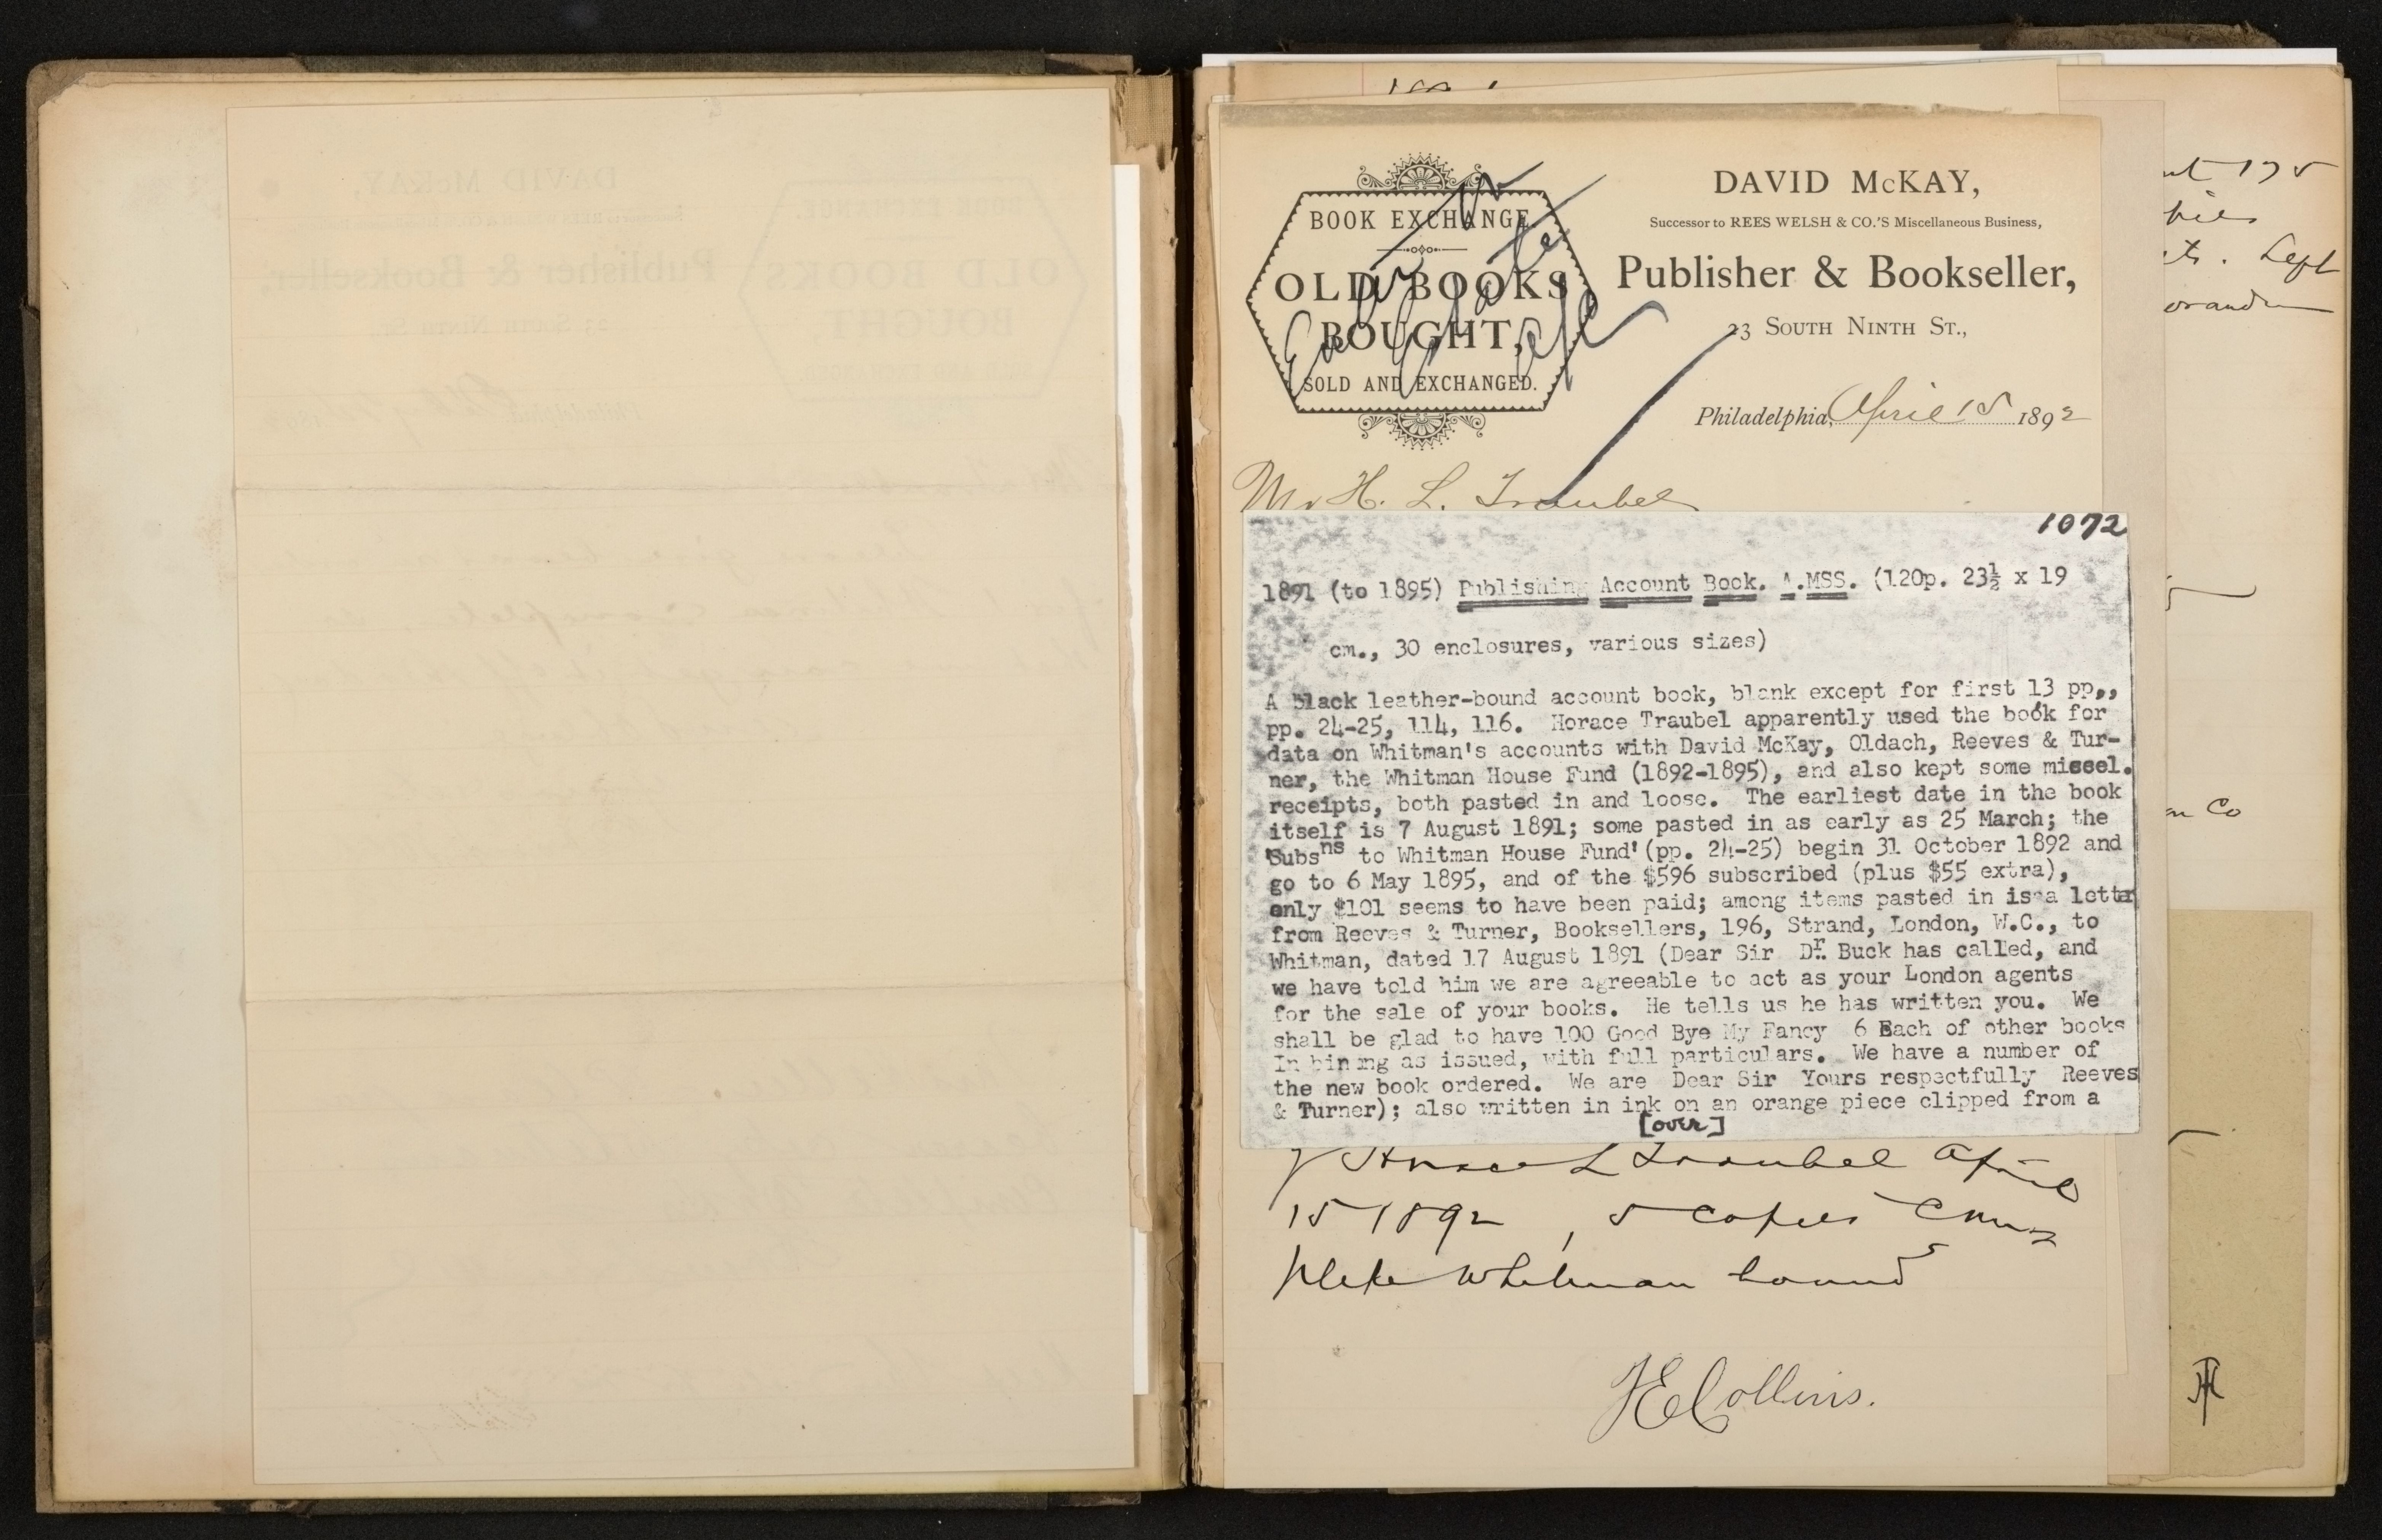 BOOK EXCHANGE
OLD BOOKS
BOUGHT,
SOLD AND EXCHANGED.
DAVID McKAY,
Successor to REES WELSH & CO.'S Miscellaneous Business,
Publisher & Bookseller,
23 SOUTH NINTH ST.,
Philadelphia, April 15 1892
Mr H. L. Traubel
1072
1891 (to 1895) Publishing Account Book. A.MSS. (120p. 23½ x 19
cm., 30 enclosures, various sizes)
A black leather-bound account book, blank except for first 13 pp.,
pp. 24-25, 114, 116. Horace Traubel apparently used the book for
data on Whitman's accounts with David McKay, Oldach, Reeves & Tur-
ner, the Whitman House Fund (1892-1895), and also kept some missel.
receipts, both pasted in and loose. The earliest date in the book
itself is 7 August 1891; some pasted in as early as 25 March; the
'Subsns to Whitman House Fund' (pp. 24-25) begin 31 October 1892 and
go to 6 May 1895, and of the $596 subscribed (plus $55 extra),
only $101 seems to have been paid; among items pasted in is a letter
from Reeves & Turner, Booksellers, 196, Strand, London, W.C., to
Whitman, dated 17 August 1891 (Dear Sir Dr. Buck has called, and
we have told him we are agreeable to act as your London agents
for the sale of your books. He tells us he has written you. We
shall be glad to have 100 Good Bye My Fancy 6 Each of other books
In bining as issued, with full particulars. We have a number of
the new book ordered. We are Dear Sir Yours respectfully Reeves
& Turner); also written in ink on an orange piece clipped from a
[over]
Horace L Traubel April
15 1892, 5 copies Com-
plete Whitman bound
HECollins.
175
Sept
Co